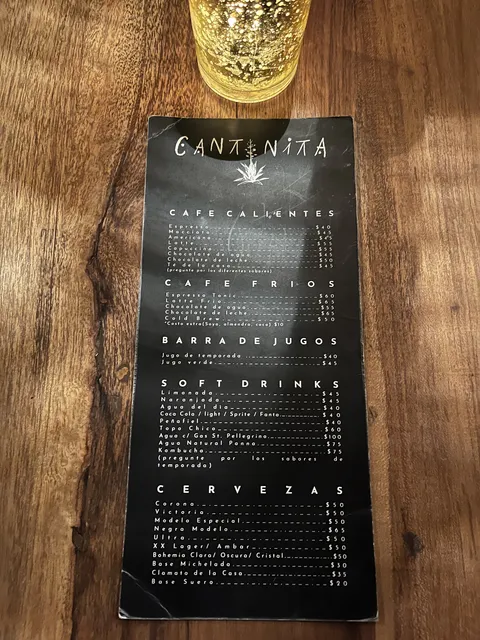 CANTINITA
CAFE CALIENTES
Espresso $40
Macciato $45
Americano $45
Latte $55
Capuccino $55
Chocolate de agua $45
Chocolate de leche $50
Te de la casa $45
(pregunte por los diferentes sabores)
CAFE FRIOS
Espresso Tonic $60
Latte Frio $65
Chocolate de agua $55
Chocolate de leche $65
Cold Brew $50
*Costo extra(Soya, almendra, coco) $10
BARRA DE JUGOS
Jugo de temporada $40
Jugo verde $45
SOFT DRINKS
Limonada $45
Naranjada $45
Agua del dia $40
Coca Cola / light / Sprite / Fanta $40
Peñafiel $40
Topo Chico $60
Agua c/ Gas St. Pellegrino $100
Agua Natural Panna $75
Kombucha $75
(pregunte por los sabores de
temporada)
CERVEZAS
Corona $50
Victoria $50
Modelo Especial $50
Negra Modelo $65
Ultra $50
XX Lager/ Ambar $50
Bohemia Clara/ Oscura/ Cristal $50
Base Michelada $30
Clamato de la Casa $35
Base Suero $20